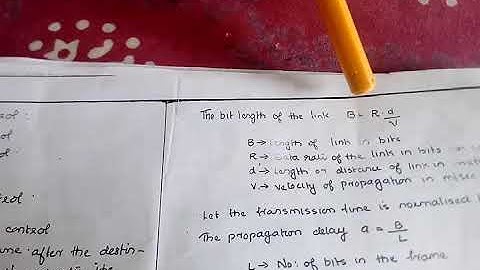 The bit length of the link B = R . d/V
B → length of link in bits
R → data rate of the link in bits
d → length or distance of link in
V → velocity of propagation in m/sec
Let the transmission time is normalised
The propagation delay a = B/L
L → No: of bits in the frame
control
after the destin-